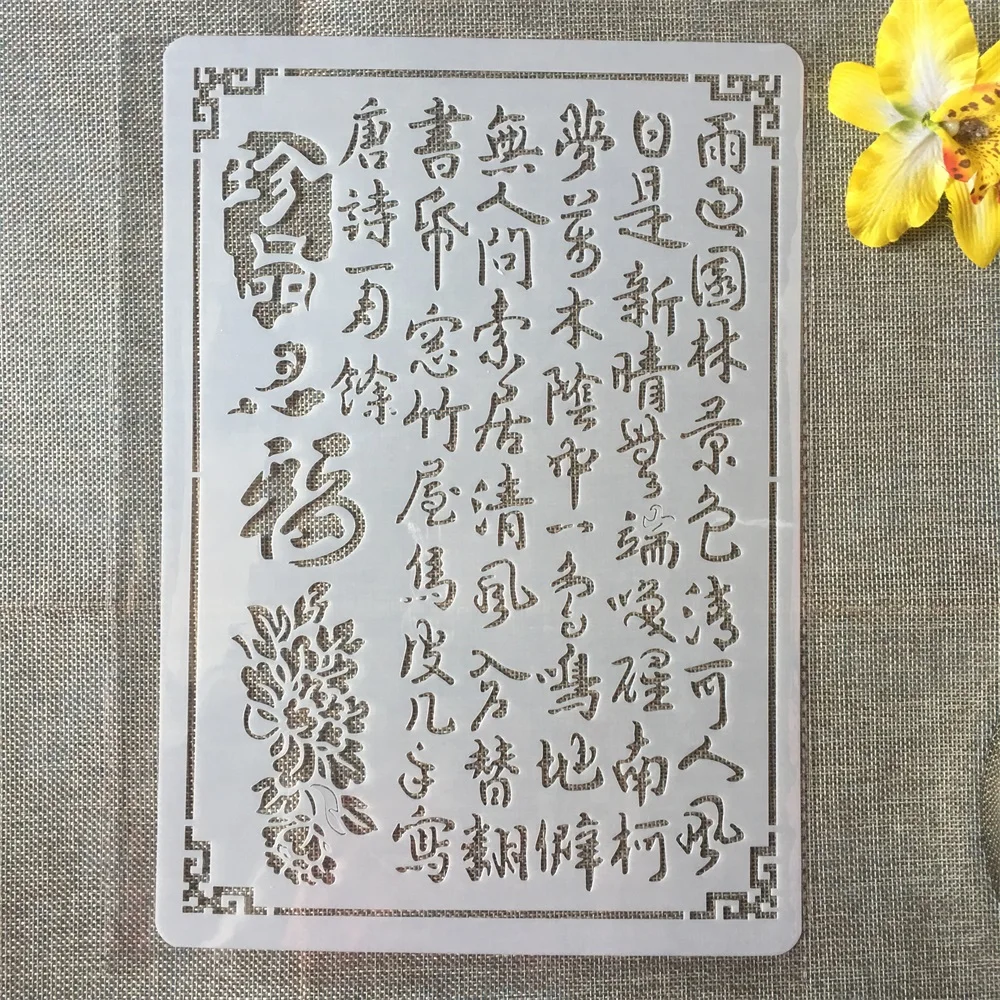 雨過園林景色清可人風
日是新晴無端喚醒南柯
夢萬木陰中一鳥鳴地僻
無人問索居清風入户替翻
書帋窓竹屋烏皮几手寫
唐詩一月餘
珍品
福